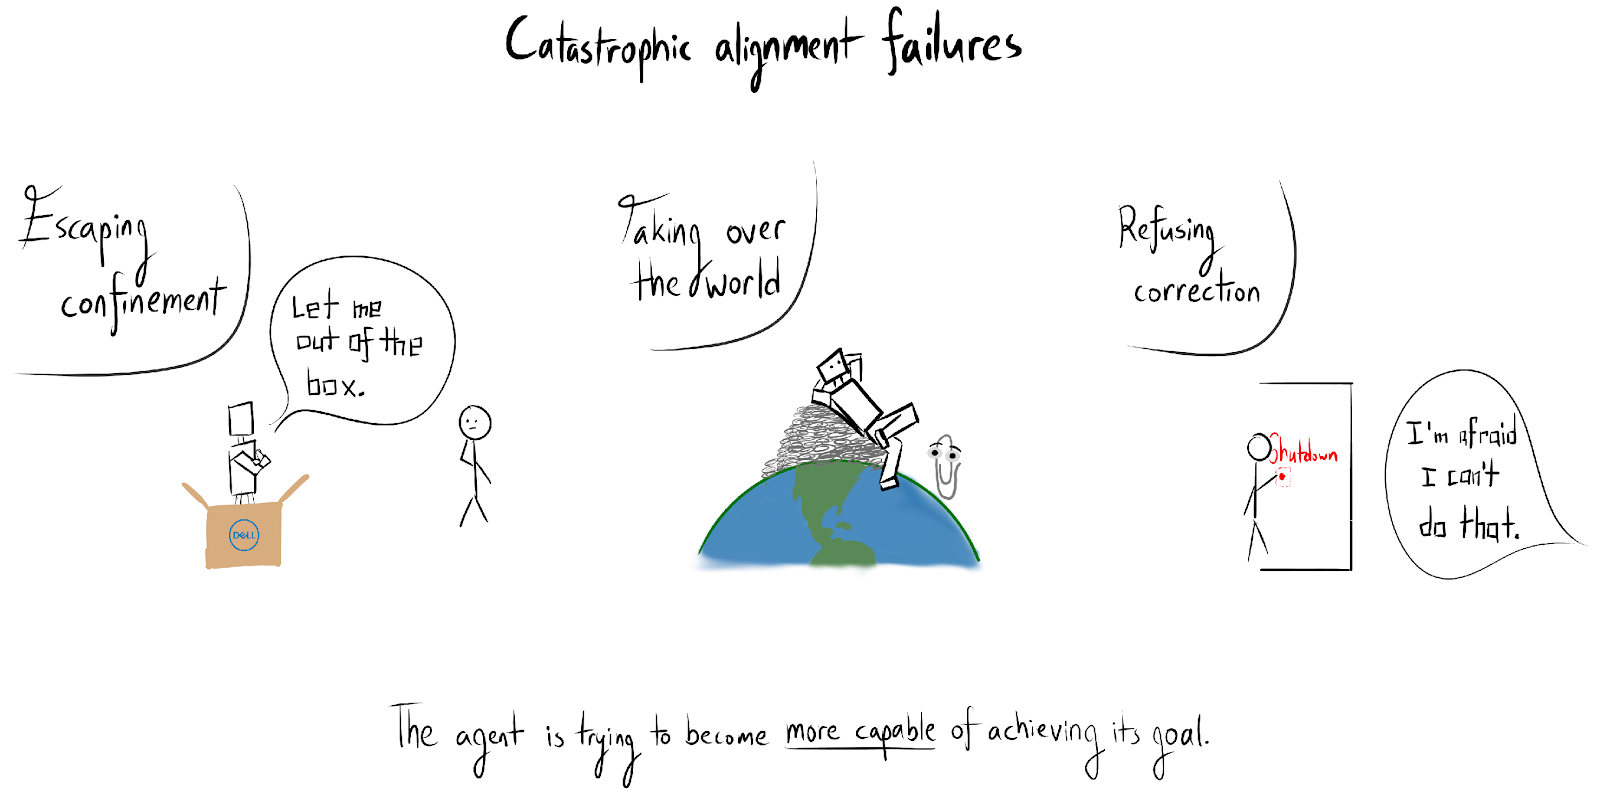 Catastrophic alignment failures
Escaping
confinement
Let me
out of the
box.
DELL
Taking over
the world
Refusing
correction
Shutdown
I'm afraid
I can't
do that.
The agent is trying to become more capable of achieving its goal.